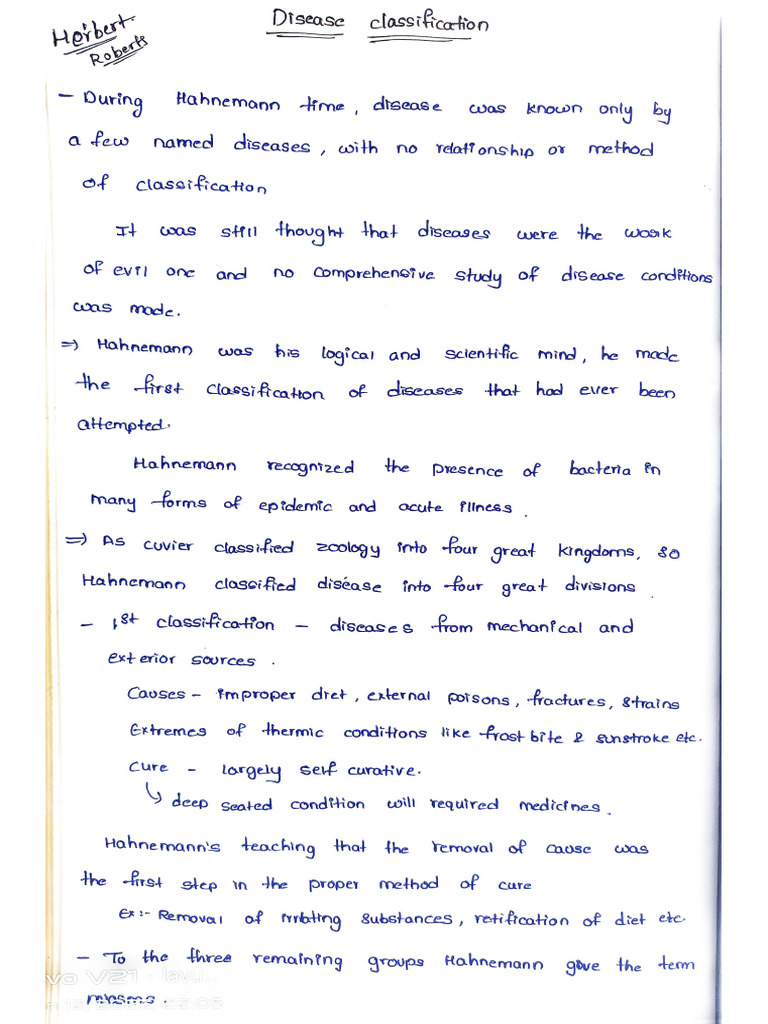 Disease classification
Herbert
Roberts
- During Hahnemann time, disease was known only by
a few named diseases, with no relationship or method
of classification
It was still thought that diseases were the work
of evil one and no comprehensive study of disease conditions
was made.
⇒ Hahnemann was his logical and scientific mind, he made
the first classification of diseases that had ever been
attempted.
Hahnemann recognized the presence of bacteria in
many forms of epidemic and acute illness.
⇒ As cuvier classified zoology into four great kingdoms, so
Hahnemann classified disease into four great divisions.
- 1st classification - diseases from mechanical and
exterior sources.
Causes - improper diet, external poisons, fractures, strains
Extremes of thermic conditions like frost bite & sunstroke etc.
Cure - largely self curative.
↳ deep seated condition will required medicines.
Hahnemann's teaching that the removal of cause was
the first step in the proper method of cure
Ex:- Removal of irritating substances, retification of diet etc.
- To the three remaining groups Hahnemann gave the term
miasms.
vo V21 · lavu...
22:05